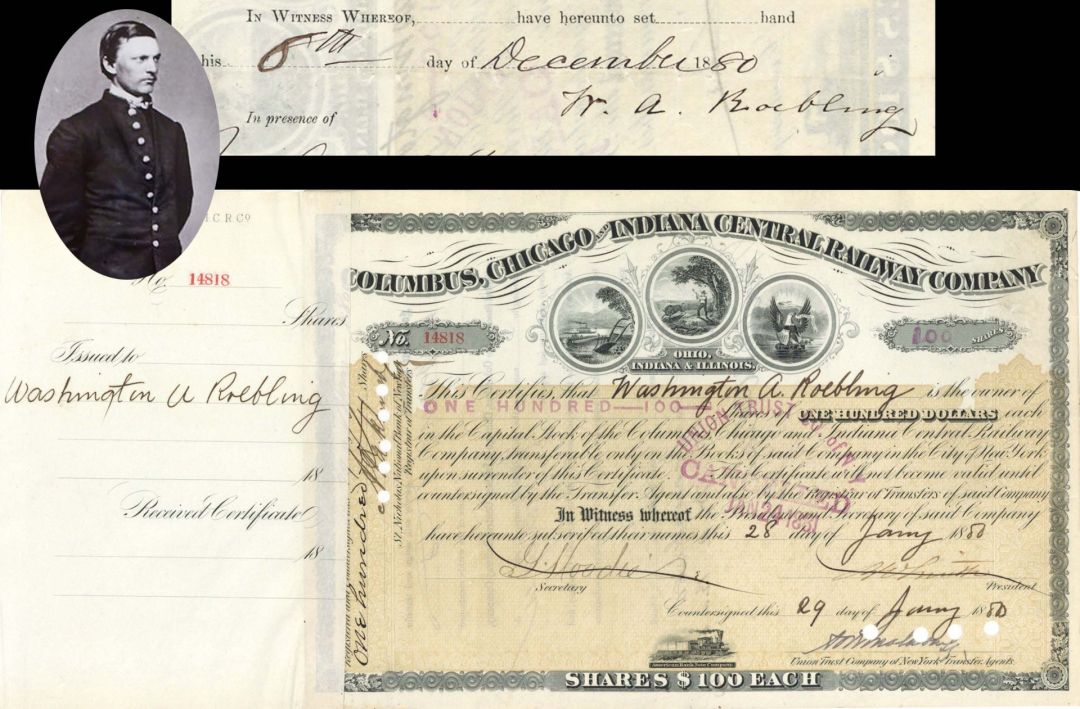 IN WITNESS WHEREOF, have hereunto set hand
his 8th day of December 1880
W. A. Roebling
In presence of
I C R Co
No. 14818
Shares
Issued to
Washington A Roebling
18
Received Certificate
18
COLUMBUS, CHICAGO AND INDIANA CENTRAL RAILWAY COMPANY
No. 14818
100 SHARES
OHIO,
INDIANA & ILLINOIS.
This Certifies, that Washington A. Roebling is the owner of
ONE HUNDRED—100— Shares of ONE HUNDRED DOLLARS each
in the Capital Stock of the Columbus, Chicago and Indiana Central Railway
Company, transferable only on the Books of said Company in the City of New York
upon surrender of this Certificate. This Certificate will not become valid until
countersigned by the Transfer Agent and also by the Registrar of Transfers of said Company
In Witness whereof the President and Secretary of said Company
have hereunto subscribed their names this 28 day of Jany 1880
Secretary
President
Countersigned this 29 day of Jany 1880
Union Trust Company of New York Transfer Agents.
American Bank Note Company
SHARES $100 EACH
UNION TRUST CO. OF N.Y.
CANCELLED
JAN 24 1881
One hundred Shares
St. Nicholas National Bank of New York
Registrar of Transfers